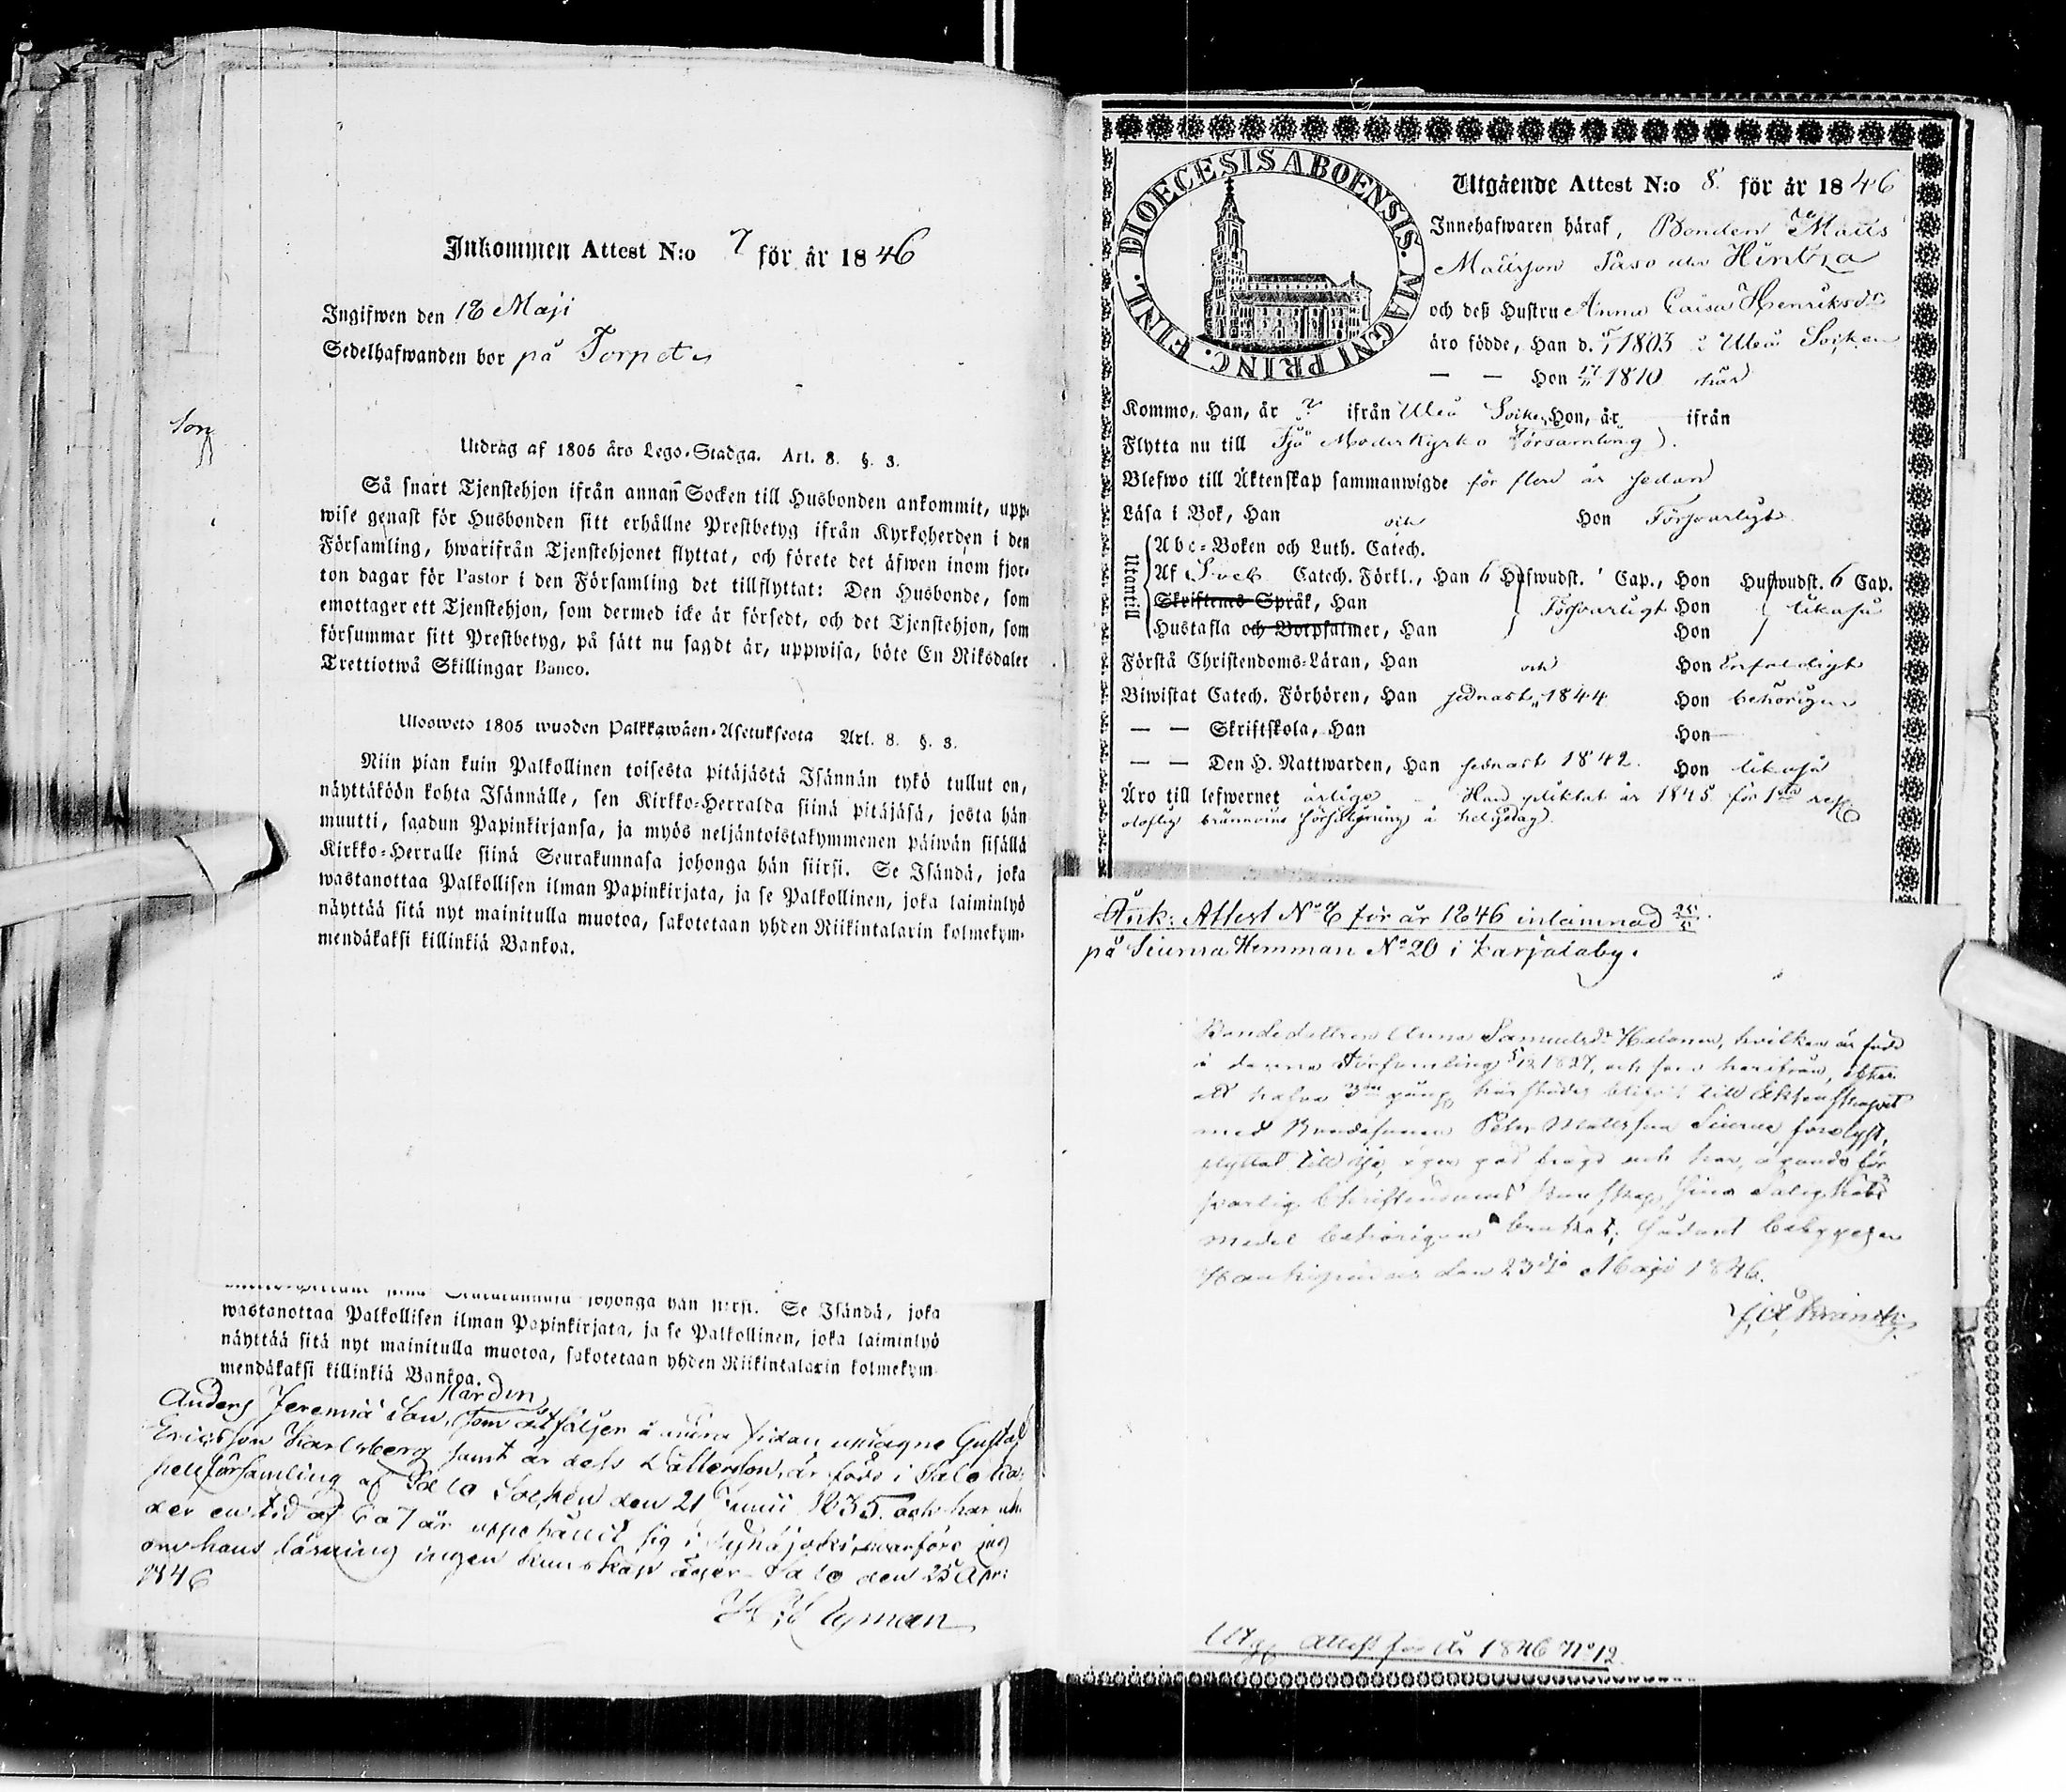 Inkommen Attest N:o 7 för år 1846
Ingifwen den 18 Maji
Sedelhafwanden bor på Torpet
Son
Utdrag af 1805 års Lego-Stadga. Art. 8. §. 3.
Så snart Tjenstehjon ifrån annan Socken till Husbonden ankommit, upp-
wise genast för Husbonden sitt erhållne Prestbetyg ifrån Kyrkoherden i den
Församling, hwarifrån Tjenstehjonet flyttat, och förete det äfwen inom fjor-
ton dagar för Pastor i den Församling det tillflyttat: Den Husbonde, som
emottager ett Tjenstehjon, som dermed icke är försedt, och det Tjenstehjon, som
försummar sitt Prestbetyg, på sätt nu sagdt är, uppwisa, böte En Riksdaler
Trettiotwå Skillingar Banco.
Ulosweto 1805 wuoden Palkkawäen-Asetuksesta Art. 8. §. 3.
Niin pian kuin Palkollinen toisesta pitäjästä Isännän tykö tullut on,
näyttäköön kohta Isännälle, sen Kirkko-Herralda siinä pitäjäsä, josta hän
muutti, saadun Papinkirjansa, ja myös neljäntoistakymmenen päiwän sisällä
Kirkko-Herralle siinä Seurakunnasa johonga hän siirsi. Se Isändä, joka
wastanottaa Palkollisen ilman Papinkirjata, ja se Palkollinen, joka laiminlyö
näyttää sitä nyt mainitulla muotoa, sakotetaan yhden Riikintalarin kolmekym-
mendäkaksi killinkiä Bankoa.
johonga hän siirsi. Se Isändä, joka
wastanottaa Palkollisen ilman Papinkirjata, ja se Palkollinen, joka laiminlyö
näyttää sitä nyt mainitulla muotoa, sakotetaan yhden Riikintalarin kolmekym-
mendäkaksi killinkiä Bankoa.
Nardin
Anders Jeremiä Son, som åtföljer å andra sidan Gustaf
Ericsson Karlsberg samt är dess Dotterson, är född i Salo Ka-
pellförsamling af Salo Socken den 21 Junii 1835 och har un-
der en tid af 6 a 7 år uppehållit sig i Pyhäjoki, hvarföre jag
om hans läsning ingen kunskap äger. Salo den 25 Apr:
1846
Nyman
DIOECESIS ABOENSIS. MAGNI PRINC. FINL.
Utgående Attest N:o 8. för år 1846
Innehafwaren häraf, Bonden Matts
Mattsson Hintza
och deß Hustru Anna Caisa Henriksdr
äro födde, Han d. 1803 i Uleå Socken
— — Hon 1810 här
Kommo, Han, år ? ifrån Uleå Socken Hon, år ifrån
Flytta nu till Ijo Moderkyrko Församling.
Blefwo till Äktenskap sammanwigde för flera år sedan
Läsa i Bok, Han och Hon Försvarligt
Utantill
Abc-Boken och Luth. Catech.
Af Sveb. Catech. Förkl., Han 6 Hufwudst. Cap., Hon Hufwudst. 6 Cap.
Skriftenes Språk, Han Försvarligt Hon likaså
Hustafla och Botpsalmer, Han Hon
Förstå Christendoms-Läran, Han och Hon Enfaldigt
Biwistat Catech. Förhören, Han sednast 1844 Hon behörigen
— — Skriftskola, Han Hon
— — Den H. Nattwarden, Han sednast 1842. Hon likaså
Äro till lefwernet ärlige Han pliktat år 1845 för 1sta
olaflig brännvins försäljning å helgedag.
Ank: Attest No 8 för år 1846 inlämnad 25/5.
på Siurua Hemman No 20 i Karjalaby.
Bondedottren Anna Samuelsdr Halonen, hvilken är född
i denna Församling 1827, och som härifrån, efter
att hafva 3dje gång härstädes blifvit till äktenskapet
med Bondesonen Peter Mattsson Siurua förelyst,
flyttat till Ijo, äger god fragd och har, ägande för-
svarlig Christendoms kunskap, sina Salighets
medel behörigen brukat; Sådant bebygges
Haukipudas den 23dje Maji 1846.
Utg. Attest för År 1846 No 12.